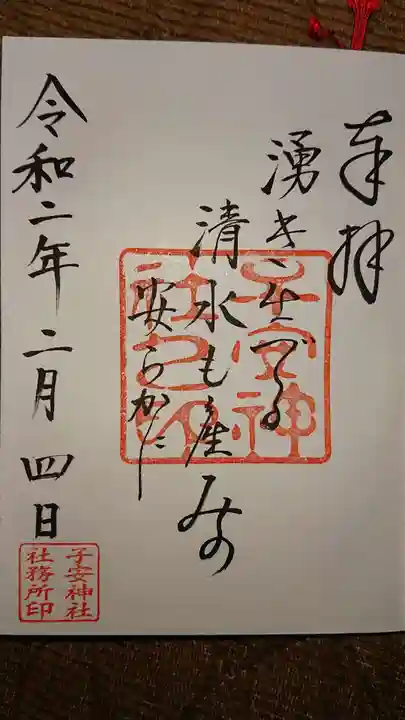 奉拝
湧き出づる
清水も産みの
安らかに
令和二年二月四日
子安神社之印
子安神社
社務所印